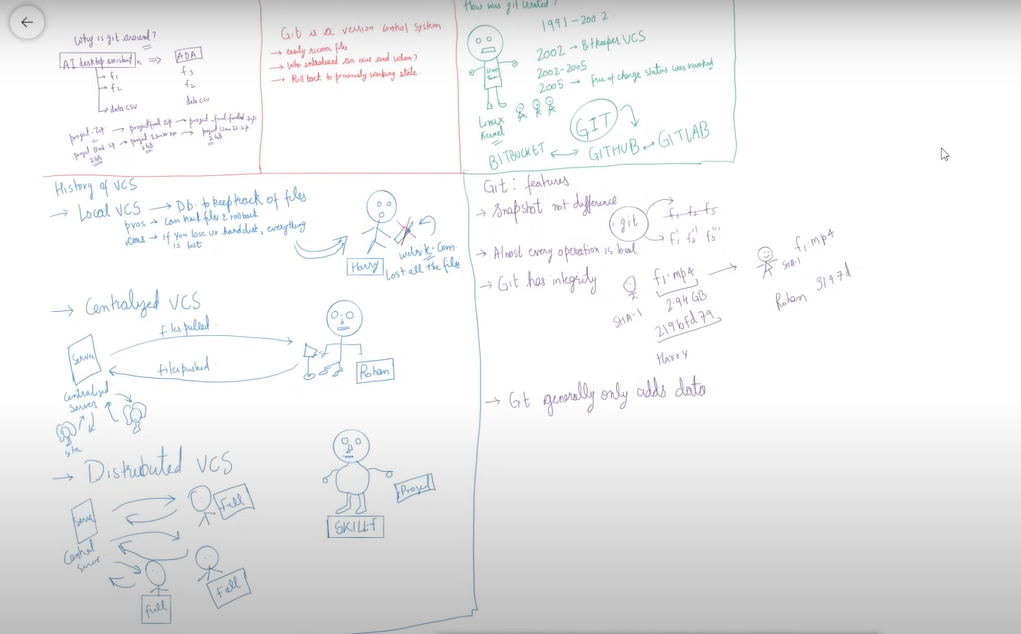 Why is git around?
AI desktop assistant ⇒ ADA
f1
f2
data csv
f3
f2
data csv
project.zip → projectfinal zip → project_final_funded zip
2GB
2GB
2GB
Git is a version control system
→ easily recover files
→ Who introduced an issue and when?
→ Roll back to previously working state
How was git created?
1991-2002
2002 → BitKeeper VCS
2002-2005
2005 → free of charge status was revoked
Linux
Kernel
GIT
BITBUCKET ↔ GITHUB ↔ GITLAB
History of VCS
→ Local VCS → Db. to keep track of files
pros → can track files & rollback
cons → if you lose ur hard disk, everything
is lost
Harry
website.com
Lost all the files
→ Centralized VCS
Server
files pulled
files pushed
Centralized
Server
Rohan
→ Distributed VCS
Server
Central
server
Full
Full
Full
Project
SKILLF
Git: features
→ Snapshot not difference
git
f1 f2 f3
→ Almost every operation is local
→ Git has integrity
f1.mp4
2.94 GB
219bfd79
SHA-1
Harry
f1.mp4
SHA-1
Rohan
3197d
→ Git generally only adds data